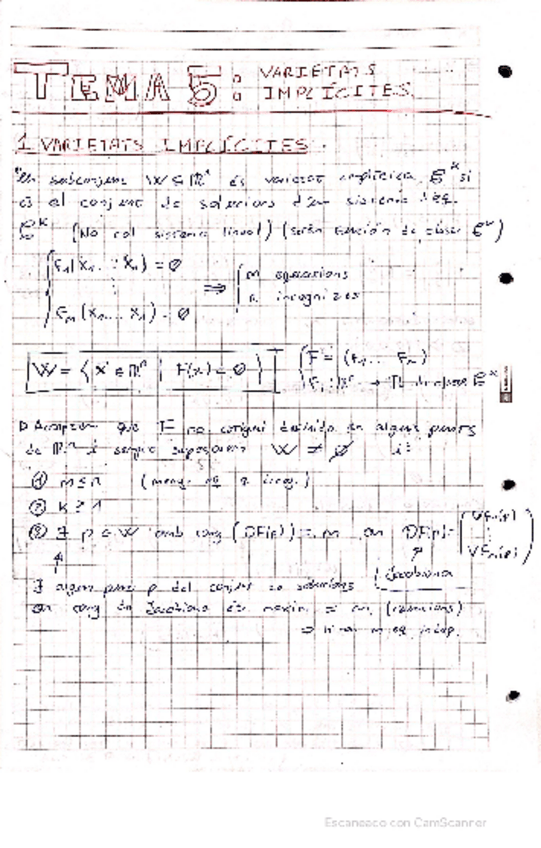 TEMA 5: VARIETATS IMPLÍCITES
1 VARIETATS IMPLÍCITES.
Un subconjunt W ⊆ ℝⁿ és varietat implícita C^k si
és el conjunt de solucions d'un sistema d'eq.
C^k (No cal sistema lineal) (serán función de clase C^k)
F₁(x₁...xₙ) = 0
⟹ m equacions
n incògnites
Fₘ(x₁...xₙ) = 0
W = { x ∈ ℝⁿ | F(x) = 0 } F = (F₁... Fₘ)
→ ℝ de classe C^k
▷ Acceptem que F no estigui definida en alguns punts
de ℝⁿ i sempre suposarem W ≠ ∅ i:
① m ≤ n (menys eq q incog.)
② k ≥ 1
③ ∃ p ∈ W amb rang (DF(p)) = m on DF(p) = (∇F₁(p) ⋮ ∇Fₘ(p))
Jacobiana
∃ algun punt p del conjunt de solucions
on rang de Jacobiana és màxim = m (equacions)